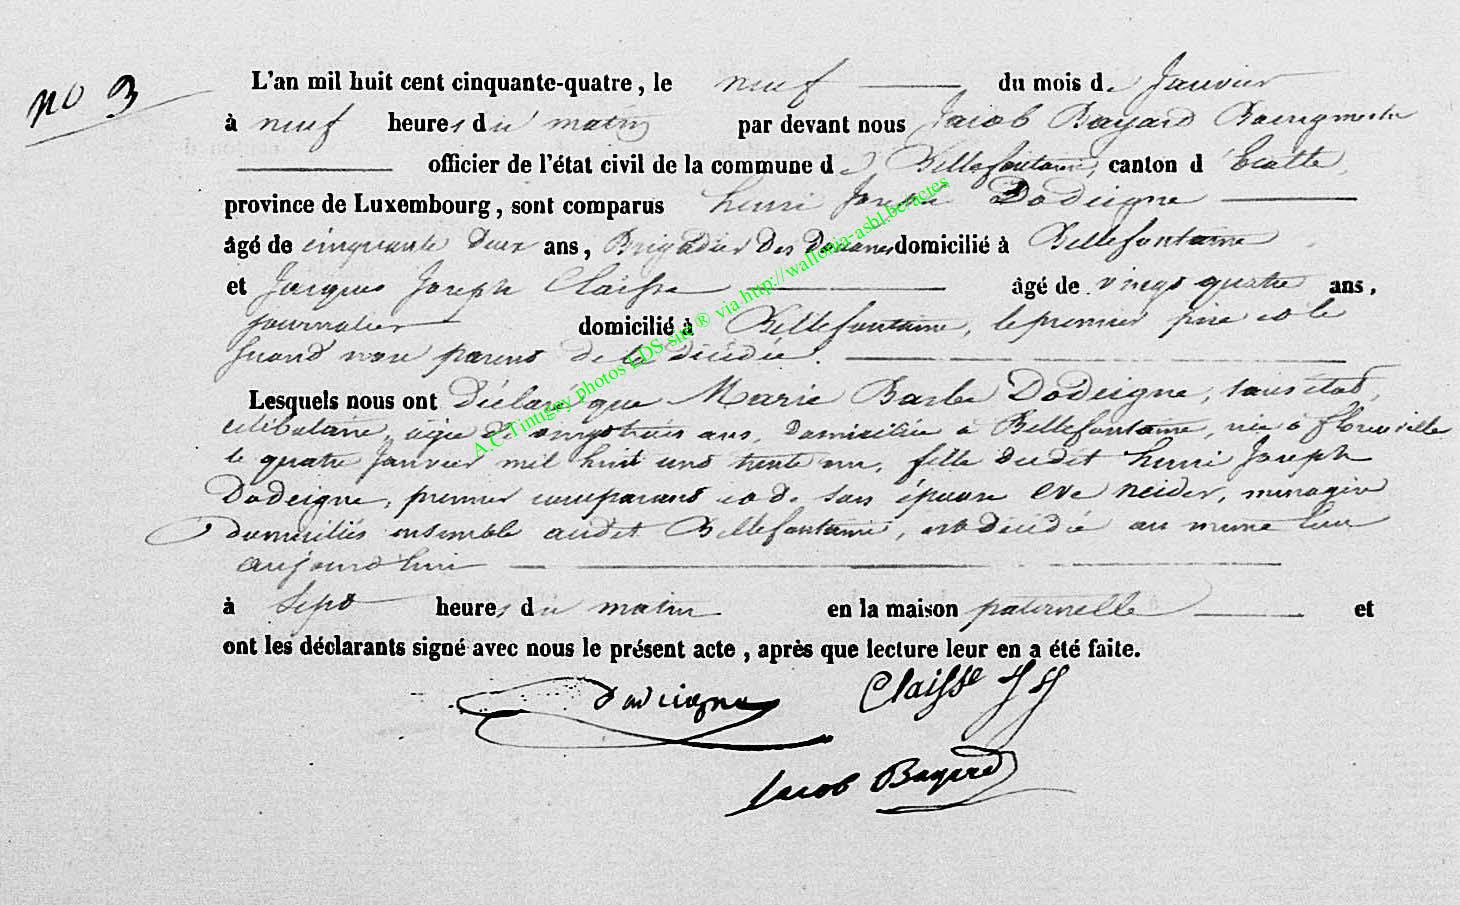 no 3
L'an mil huit cent cinquante-quatre, le neuf du mois de Janvier
à neuf heures du matin par devant nous Jacob Bayard Bourgmestre
officier de l'état civil de la commune de Bellefontaine, canton d'Etalle,
province de Luxembourg, sont comparus henri Joseph Dodeigne
âgé de cinquante deux ans, Brigadier des douanes domicilié à Bellefontaine
et Jacques Joseph Claisse âgé de vingt quatre ans,
journalier domicilié à Bellefontaine, le premier père et le
second non parent de la décédée.
Lesquels nous ont déclaré que Marie Barbe Dodeigne, sans état,
célibataire, agée de vingt trois ans, domiciliée à Bellefontaine, née à florenville
le quatre Janvier mil huit cent trente un, fille dudit henri Joseph
Dodeigne, premier comparant et de son épouse eve neider, ménagère
domiciliés ensemble audit Bellefontaine, est décédée au même lieu
aujourd'hui
à sept heures du matin en la maison paternelle et
ont les déclarants signé avec nous le présent acte, après que lecture leur en a été faite.
Dodeigne Claisse JJ
Jacob Bayard
A.C. Tintigny photos LDS sur ® via http://wallonia-asbl.be/actes